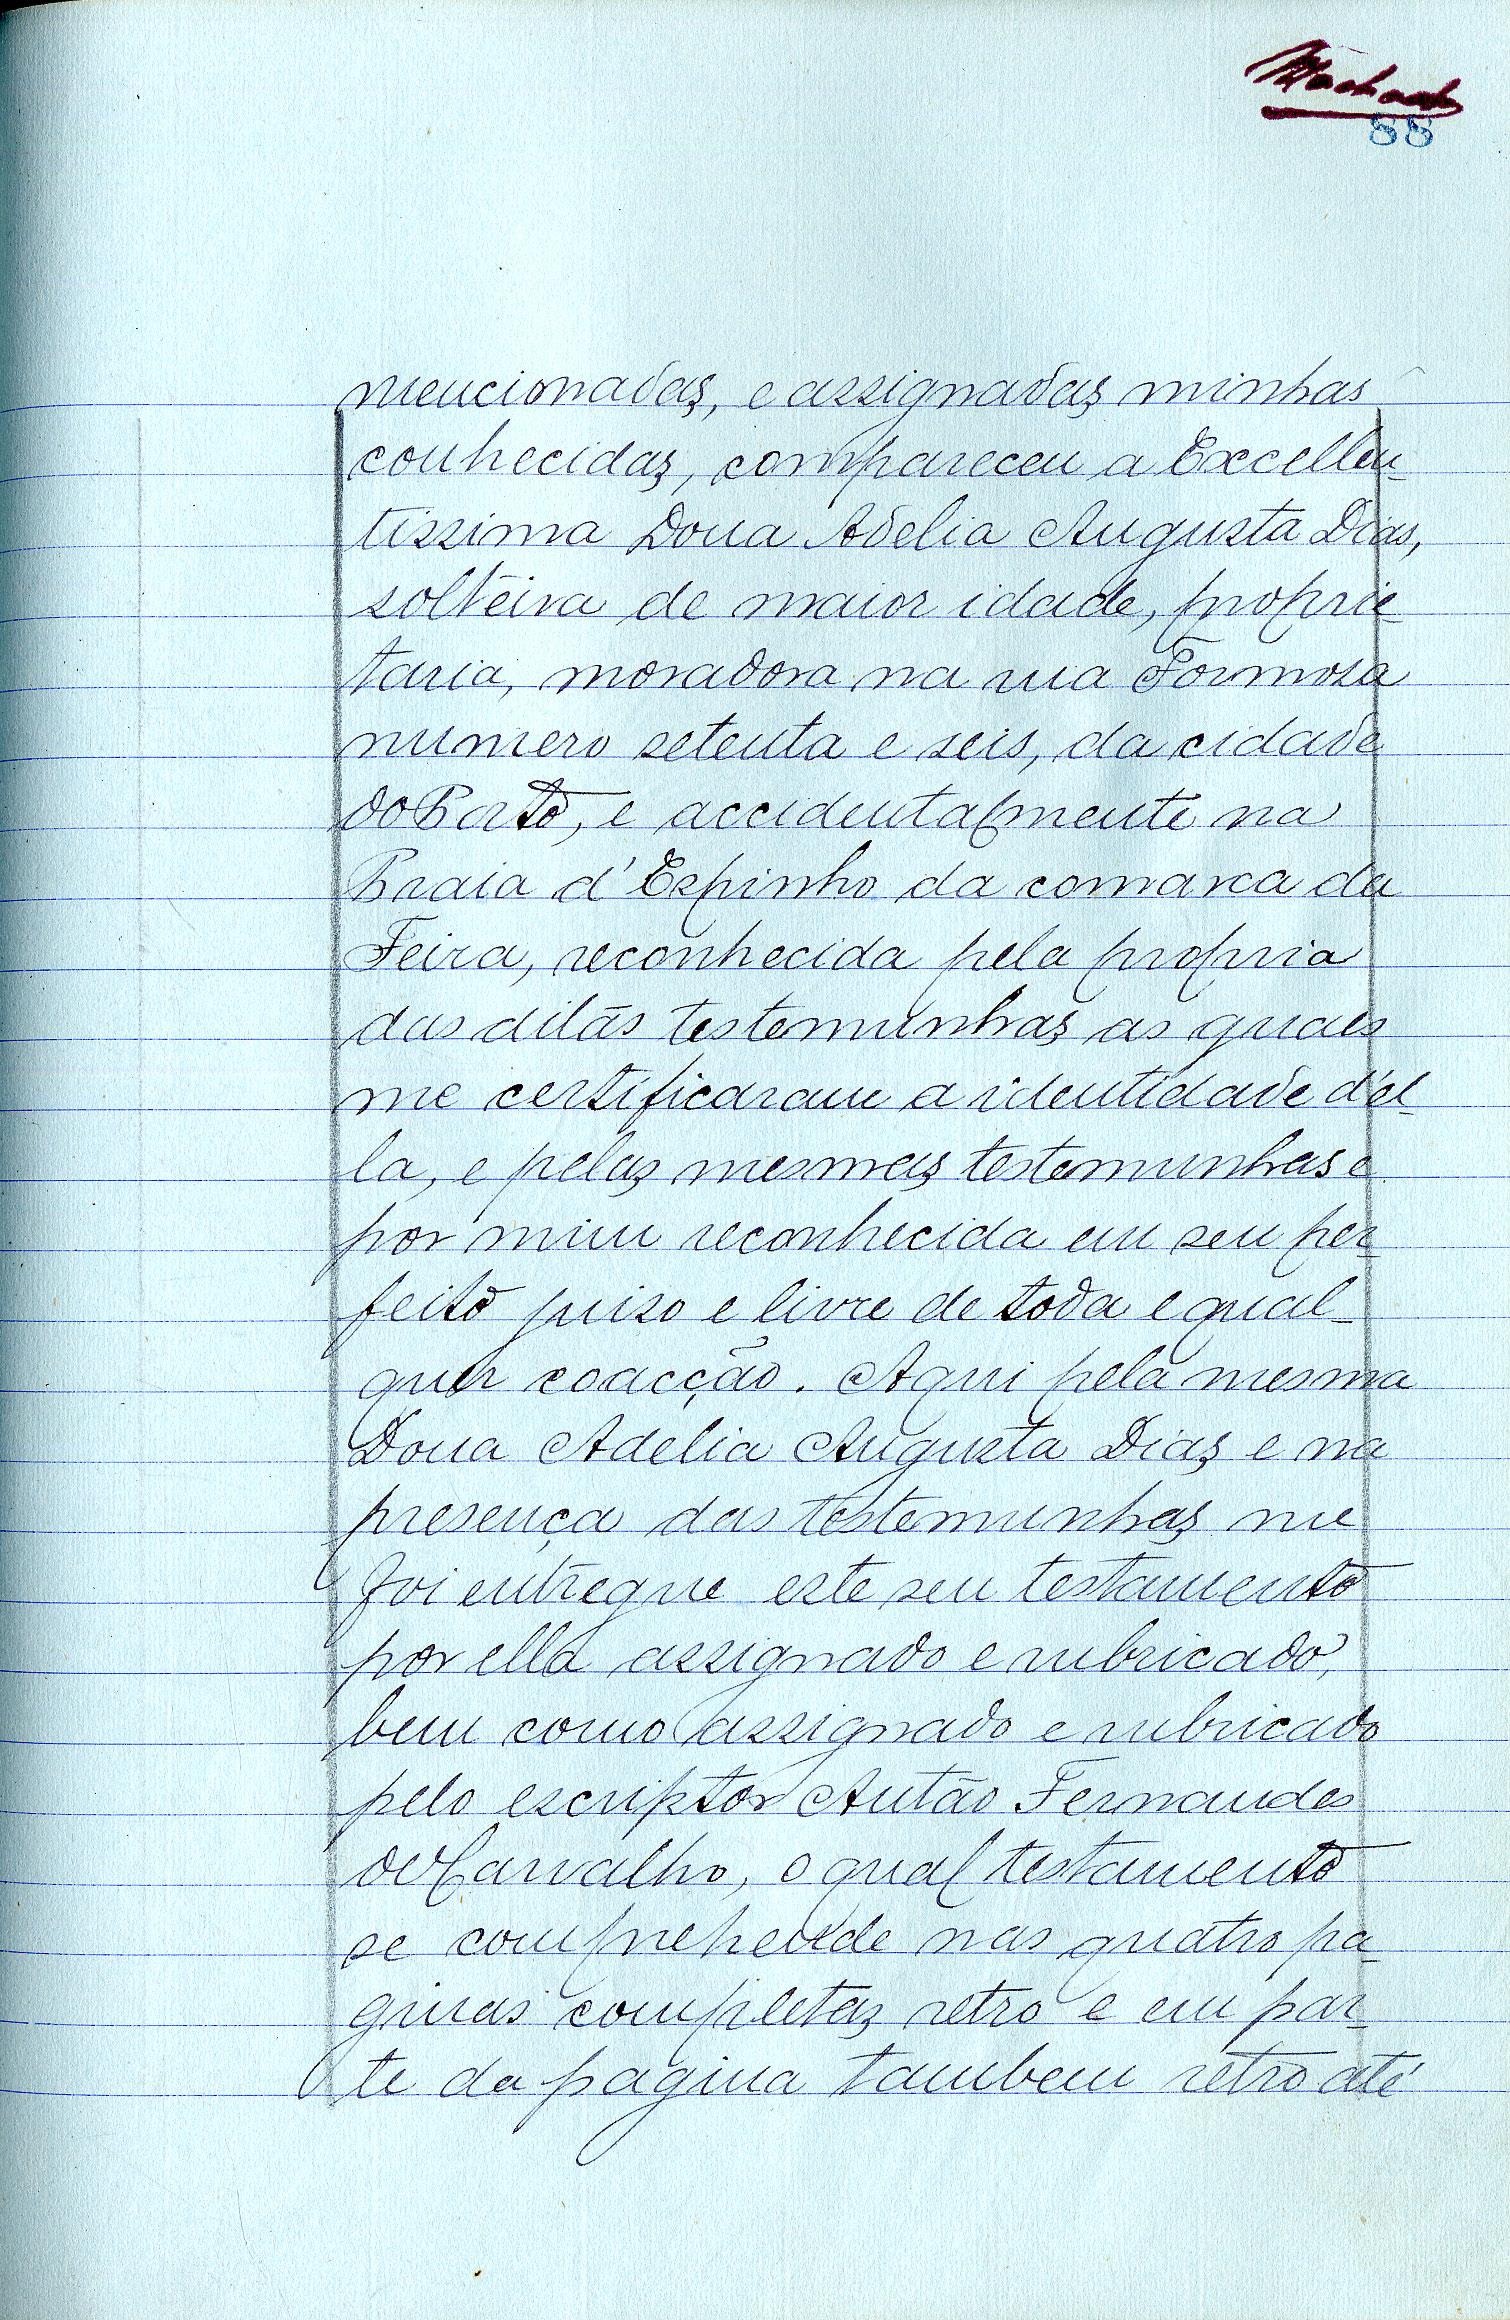 Machado
88
mencionadas, e assignadas minhas
conhecidas, compareceu a Excellen-
tissima Dona Adelia Augusta Dias,
solteira de maior idade, proprie-
taria, moradora na rua Formosa
numero setenta e seis, da cidade
do Porto, e accidentalmente na
Praia d'Espinho da comarca da
Feira, reconhecida pela propria
das ditas testemunhas as quaes
me certificaram a identidade d'el-
la, e pelas mesmas testemunhas e
por mim reconhecida em seu per-
feito juiso e livre de toda e qual-
quer coacção. Aqui pela mesma
Dona Adelia Augusta Dias e na
presença das testemunhas me
foi entregue este seu testamento
por ella assignado e rubricado,
bem como assignado e rubricado
pelo escriptor Antão Fernandes
de Carvalho, o qual testamento
se comprehende nas quatro pa-
ginas completas retro e em par-
te da pagina tambem retro até